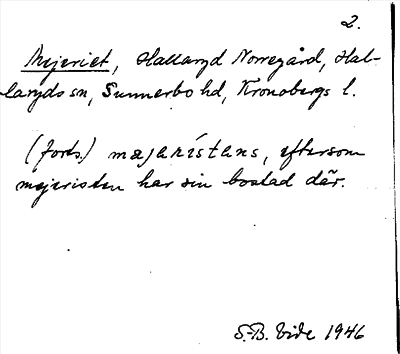 2.
Mejeriet, Hallaryd Norregård, Hal-
laryds sn, Sunnerbo hd, Kronobergs l.
(forts.) majarístans, eftersom
mejeristen har sin bostad där.
S.-B. Vide 1946